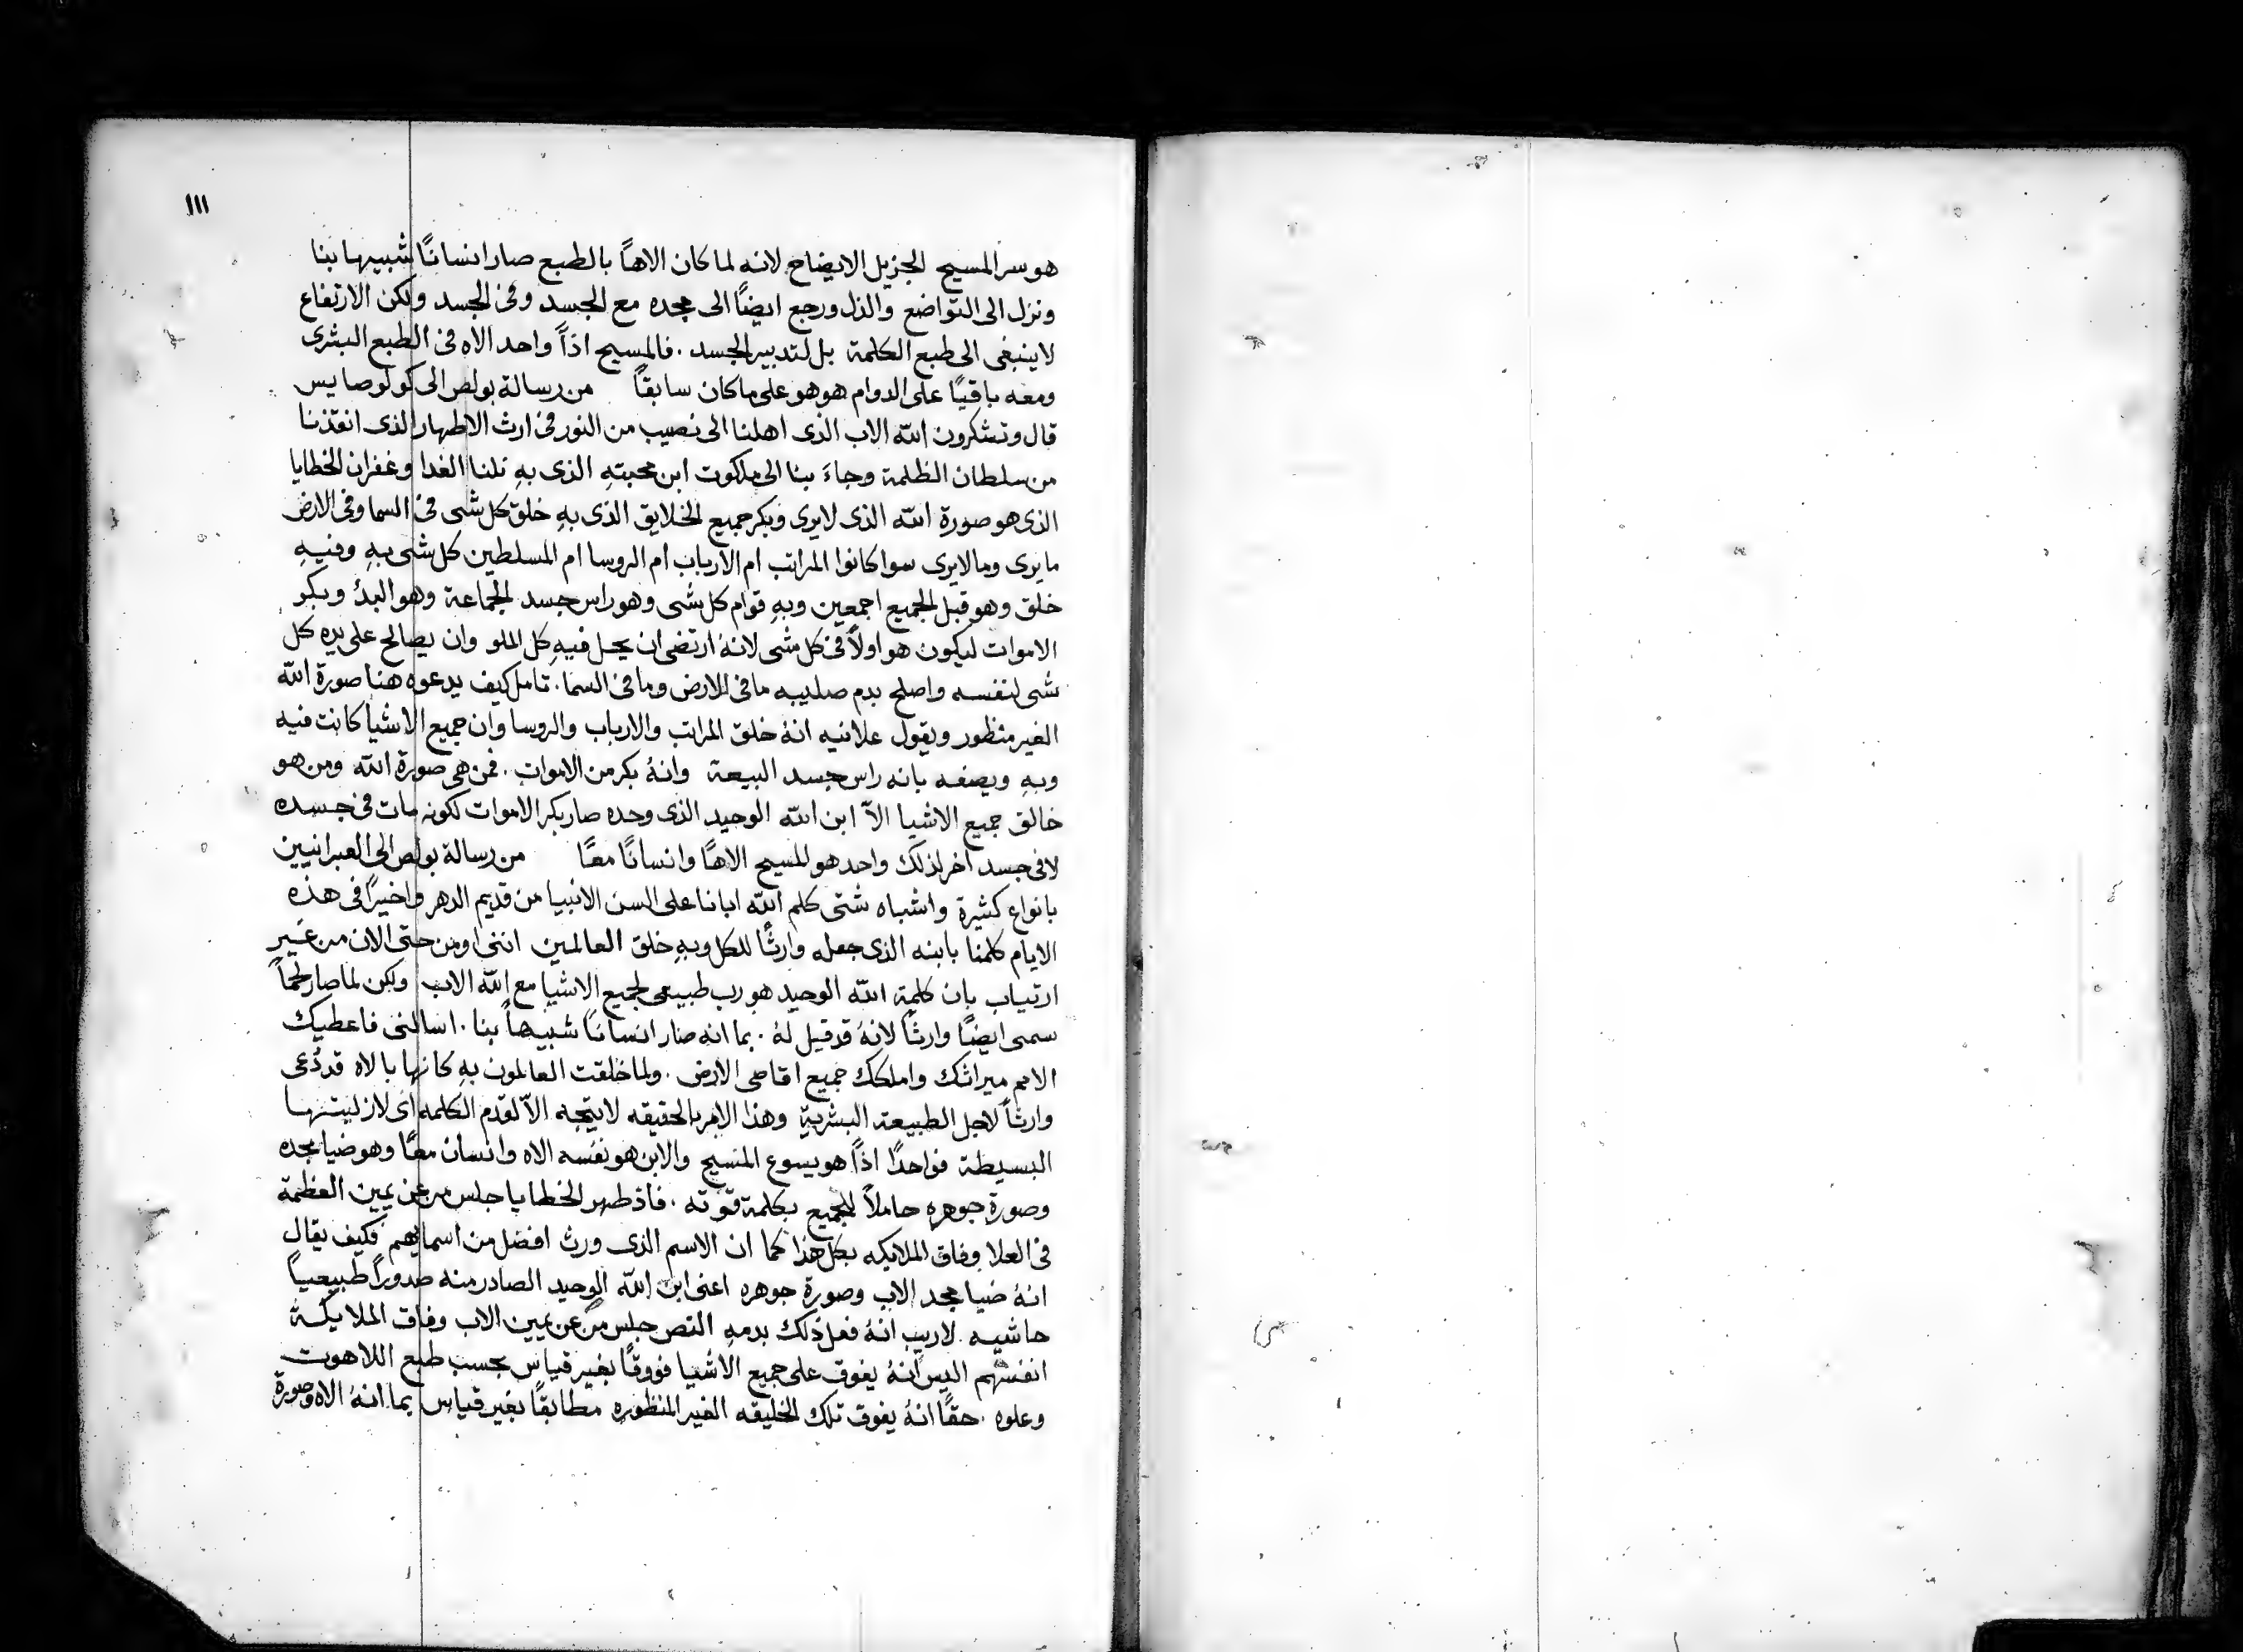 ١١١
هو سر المسيح الجزيل الايضاح لانه لما كان الاهاً بالطبع صار انسانًا شبيها بنا
ونزل الى التواضع والذل ورجع ايضًا الى مجده مع الجسد وفى الجسد ولكن الارتفاع
لا ينبغى الى طبع الكلمة بل لتدبير الجسد . فالمسيح اذاً واحد الاه فى الطبع البشرى
ومعه باقيًا على الدوام هو هو على ما كان سابقاً من رسالة بولص الى كولوصايس
قال وتشكرون الله الاب الذى اهلنا الى نصيب من النور فى ارث الاطهار الذى انقذنا
من سلطان الظلمة وجاءَ بنا الى ملكوت ابن محبتهِ الذى بهِ نلنا الفدا وغفران الخطايا
الذى هو صورة الله الذى لا يرى وبكر جميع الخلايق الذى بهِ خلق كل شى فى السما وفى الارض
ما يرى وما لا يرى سوا كانوا المراتب ام الارباب ام الروسا ام المسلطين كل شى بهِ وفيهِ
خلق وهو قبل الجميع اجمعين وبهِ قوام كل شى وهو راس جسد الجماعة وهو البدؤ وبكر
الاموات ليكون هو اولاً فى كل شى لانهُ ارتضى ان يحل فيهِ كل الملو وان يصالح على يده كل
شى لنفسه واصلح بدم صليبه ما فى الارض وما فى السما . تامل كيف يدعوه هنا صورة الله
الغير منظور ويقول علانيه انهُ خلق المراتب والارباب والروسا وان جميع الاشيا كانت فيه
وبهِ ويصفه بانه راس جسد البيعة وانهُ بكر من الاموات . فمن هى صورة الله ومن هو
خالق جميع الاشيا الاّ ابن الله الوحيد الذى وحده صار بكر الاموات لكونه مات فى جسده
لا فى جسد اخر لذلك واحد هو المسيح الاهًا وانسانًا معًا من رسالة بولص الى العبرانيين
بانواع كثيرة واشباه شتى كلم الله ابانا على السن الانبيا من قديم الدهر واخيرًا فى هذه
الايام كلمنا بابنه الذى جعله وارثًا للكل وبهِ خلق العالمين اننى اومن حتى الان من غير
ارتياب بان كلمة الله الوحيد هو رب طبيعى لجميع الاشيا مع الله الاب ولكن لما صار لحماً
سمى ايضًا وارثاً لانهُ قد قيل لهُ . بما انه صار انسانًا شبيهاً بنا . اسالنى فاعطيك
الامم ميراثك واملكك جميع اقاصى الارض . ولما خلقت العالمون بهِ كانها بالاه قد دُعى
وارثاً لاجل الطبيعة البشرية وهذا الامر بالحقيقه لا يتجه الاّ لقدم الكلمه اى لازليتها
البسيطة فواحدًا اذاً هو يسوع المسيح والابن هو نفسه الاه وانسان معًا وهو ضيا مجده
وصورة جوهره حاملاً للجميع بكلمة قوته . فاذ طهر الخطايا جلس من عن يمين العظمة
فى العلا وفاق الملايكه بكل هذا كما ان الاسم الذى ورث افضل من اسمايهم فكيف يقال
انهُ ضيا مجد الاب وصورة جوهره اعنى ابن الله الوحيد الصادر منه صدوراً طبيعياً
حاشيه . لا ريب انهُ فعل ذلك بدمهِ النص جلس من عن يمين الاب وفاق الملايكة
انفسهم اليس انهُ يفوق على جميع الاشيا فووقًا بغير قياس بحسب طبع اللاهوت
وعلوه . حقًا انهُ يفوق تلك الخليقه الغير المنظوره مطابقًا بغير قياس بما انهُ الاه وصورة